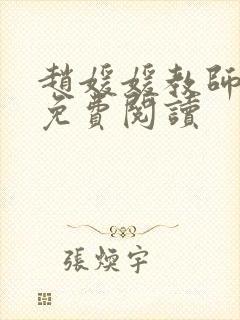 趙媛媛教師
免費閱讀
張煥宇